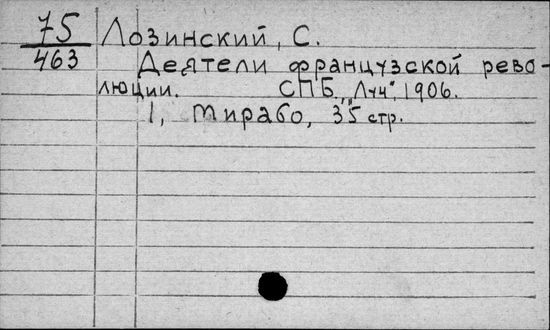 75 Лозинский, С.
463 Деятели французской рево-
люции. СПБ, "Луч", 1906.
1, Мирабо, 35 стр.